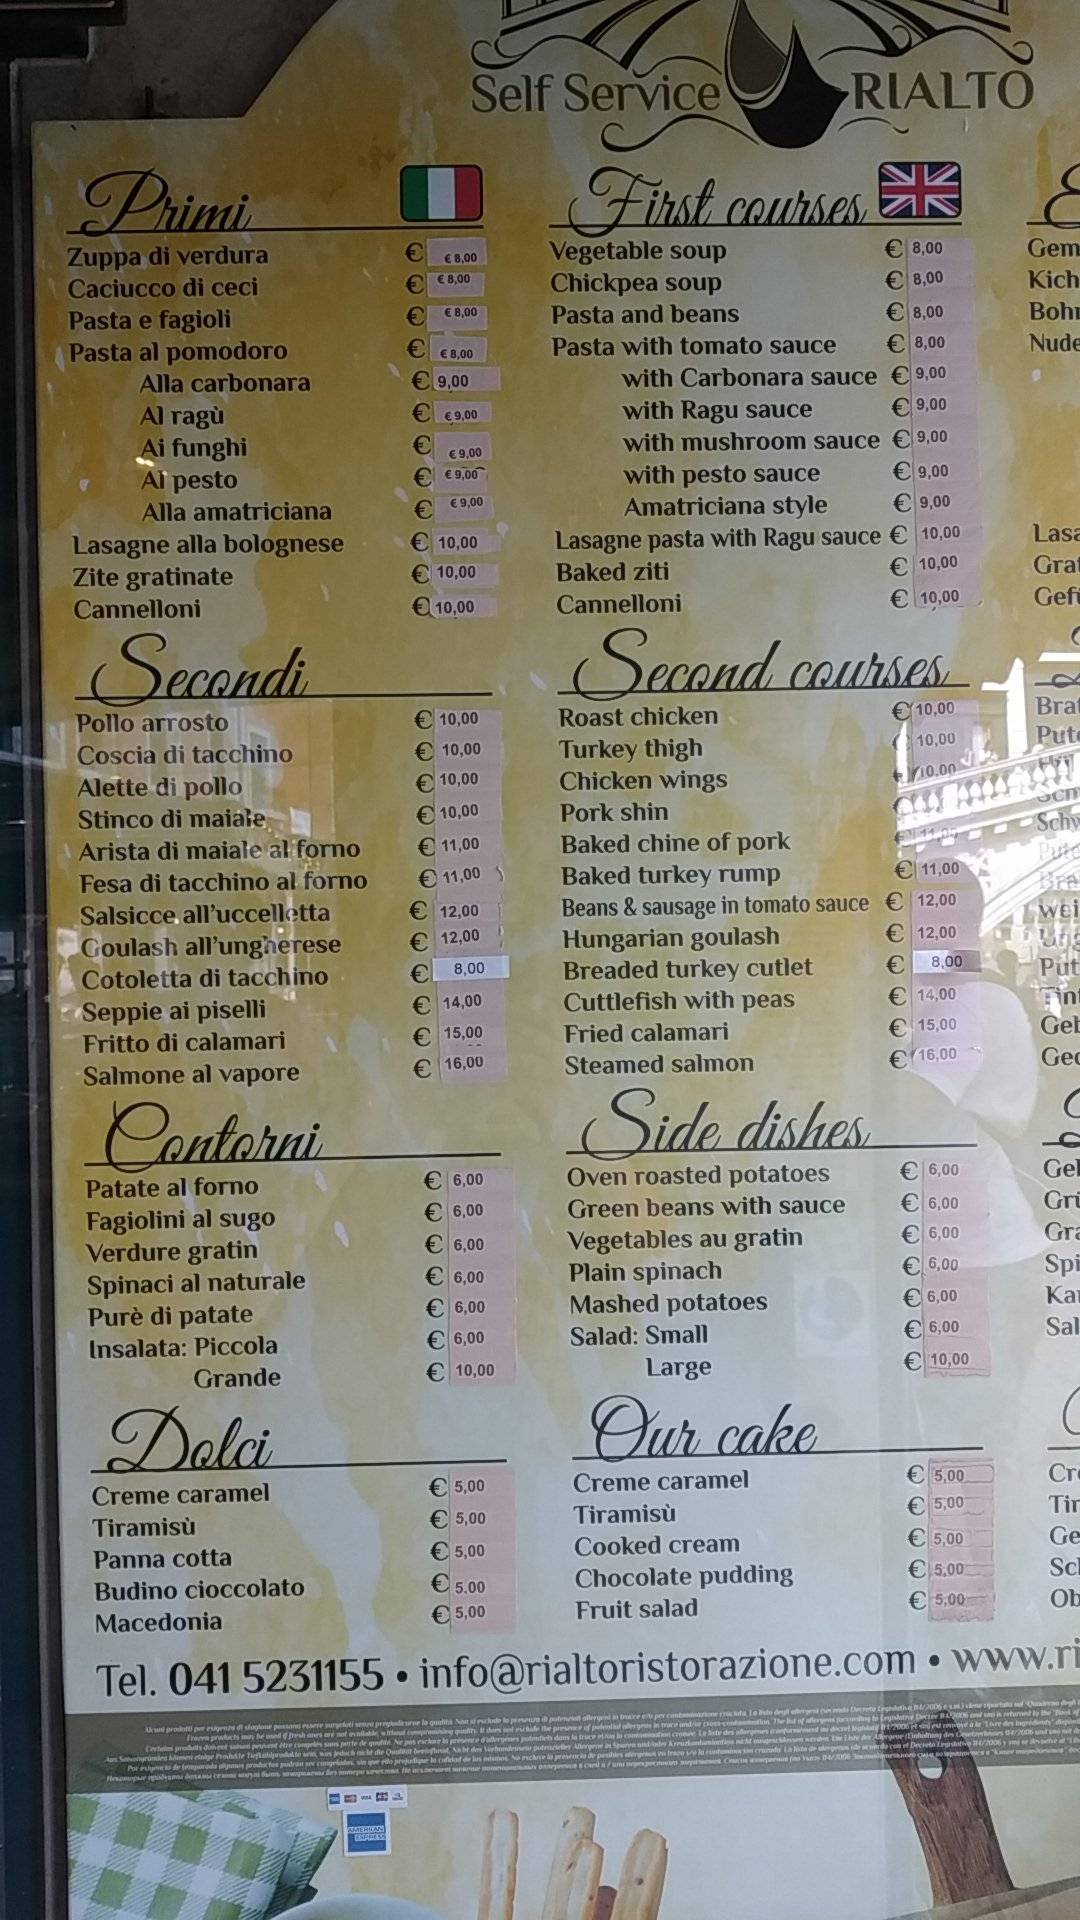 Self Service RIALTO
Primi
Zuppa di verdura € € 8,00
Caciucco di ceci € € 8,00
Pasta e fagioli € € 8,00
Pasta al pomodoro € € 8,00
Alla carbonara € 9,00
Al ragù € € 9,00
Ai funghi € € 9,00
Al pesto € € 9,00
Alla amatriciana € € 9,00
Lasagne alla bolognese € 10,00
Zite gratinate € 10,00
Cannelloni € 10,00
Secondi
Pollo arrosto € 10,00
Coscia di tacchino € 10,00
Alette di pollo € 10,00
Stinco di maiale € 10,00
Arista di maiale al forno € 11,00
Fesa di tacchino al forno € 11,00
Salsicce all'uccelletta € 12,00
Goulash all'ungherese € 12,00
Cotoletta di tacchino € 8,00
Seppie ai piselli € 14,00
Fritto di calamari € 15,00
Salmone al vapore € 16,00
Contorni
Patate al forno € 6,00
Fagiolini al sugo € 6,00
Verdure gratin € 6,00
Spinaci al naturale € 6,00
Purè di patate € 6,00
Insalata: Piccola € 6,00
Grande € 10,00
Dolci
Creme caramel € 5,00
Tiramisù € 5,00
Panna cotta € 5,00
Budino cioccolato € 5.00
Macedonia € 5,00
First courses
Vegetable soup € 8,00
Chickpea soup € 8,00
Pasta and beans € 8,00
Pasta with tomato sauce € 8,00
with Carbonara sauce € 9,00
with Ragu sauce € 9,00
with mushroom sauce € 9,00
with pesto sauce € 9,00
Amatriciana style € 9,00
Lasagne pasta with Ragu sauce € 10,00
Baked ziti € 10,00
Cannelloni € 10,00
Second courses
Roast chicken € 10,00
Turkey thigh € 10,00
Chicken wings 10,00
Pork shin
Baked chine of pork € 11,00
Baked turkey rump € 11,00
Beans & sausage in tomato sauce € 12,00
Hungarian goulash € 12,00
Breaded turkey cutlet € 8,00
Cuttlefish with peas € 14,00
Fried calamari € 15,00
Steamed salmon € 16,00
Side dishes
Oven roasted potatoes € 6,00
Green beans with sauce € 6,00
Vegetables au gratin € 6,00
Plain spinach € 6,00
Mashed potatoes € 6,00
Salad: Small € 6,00
Large € 10,00
Our cake
Creme caramel € 5,00
Tiramisù € 5,00
Cooked cream € 5,00
Chocolate pudding € 5,00
Fruit salad € 5,00
Gem
Kich
Bohn
Nude
Lasa
Grat
Gefü
Brat
Pute
Schw
Pute
wei
Ung
Put
Tint
Geb
Ged
Gel
Grü
Gra
Spi
Kar
Sal
Cre
Tir
Ge
Sch
Ob
Tel. 041 5231155 • info@rialtoristorazione.com • www.ri
AMERICAN
EXPRESS